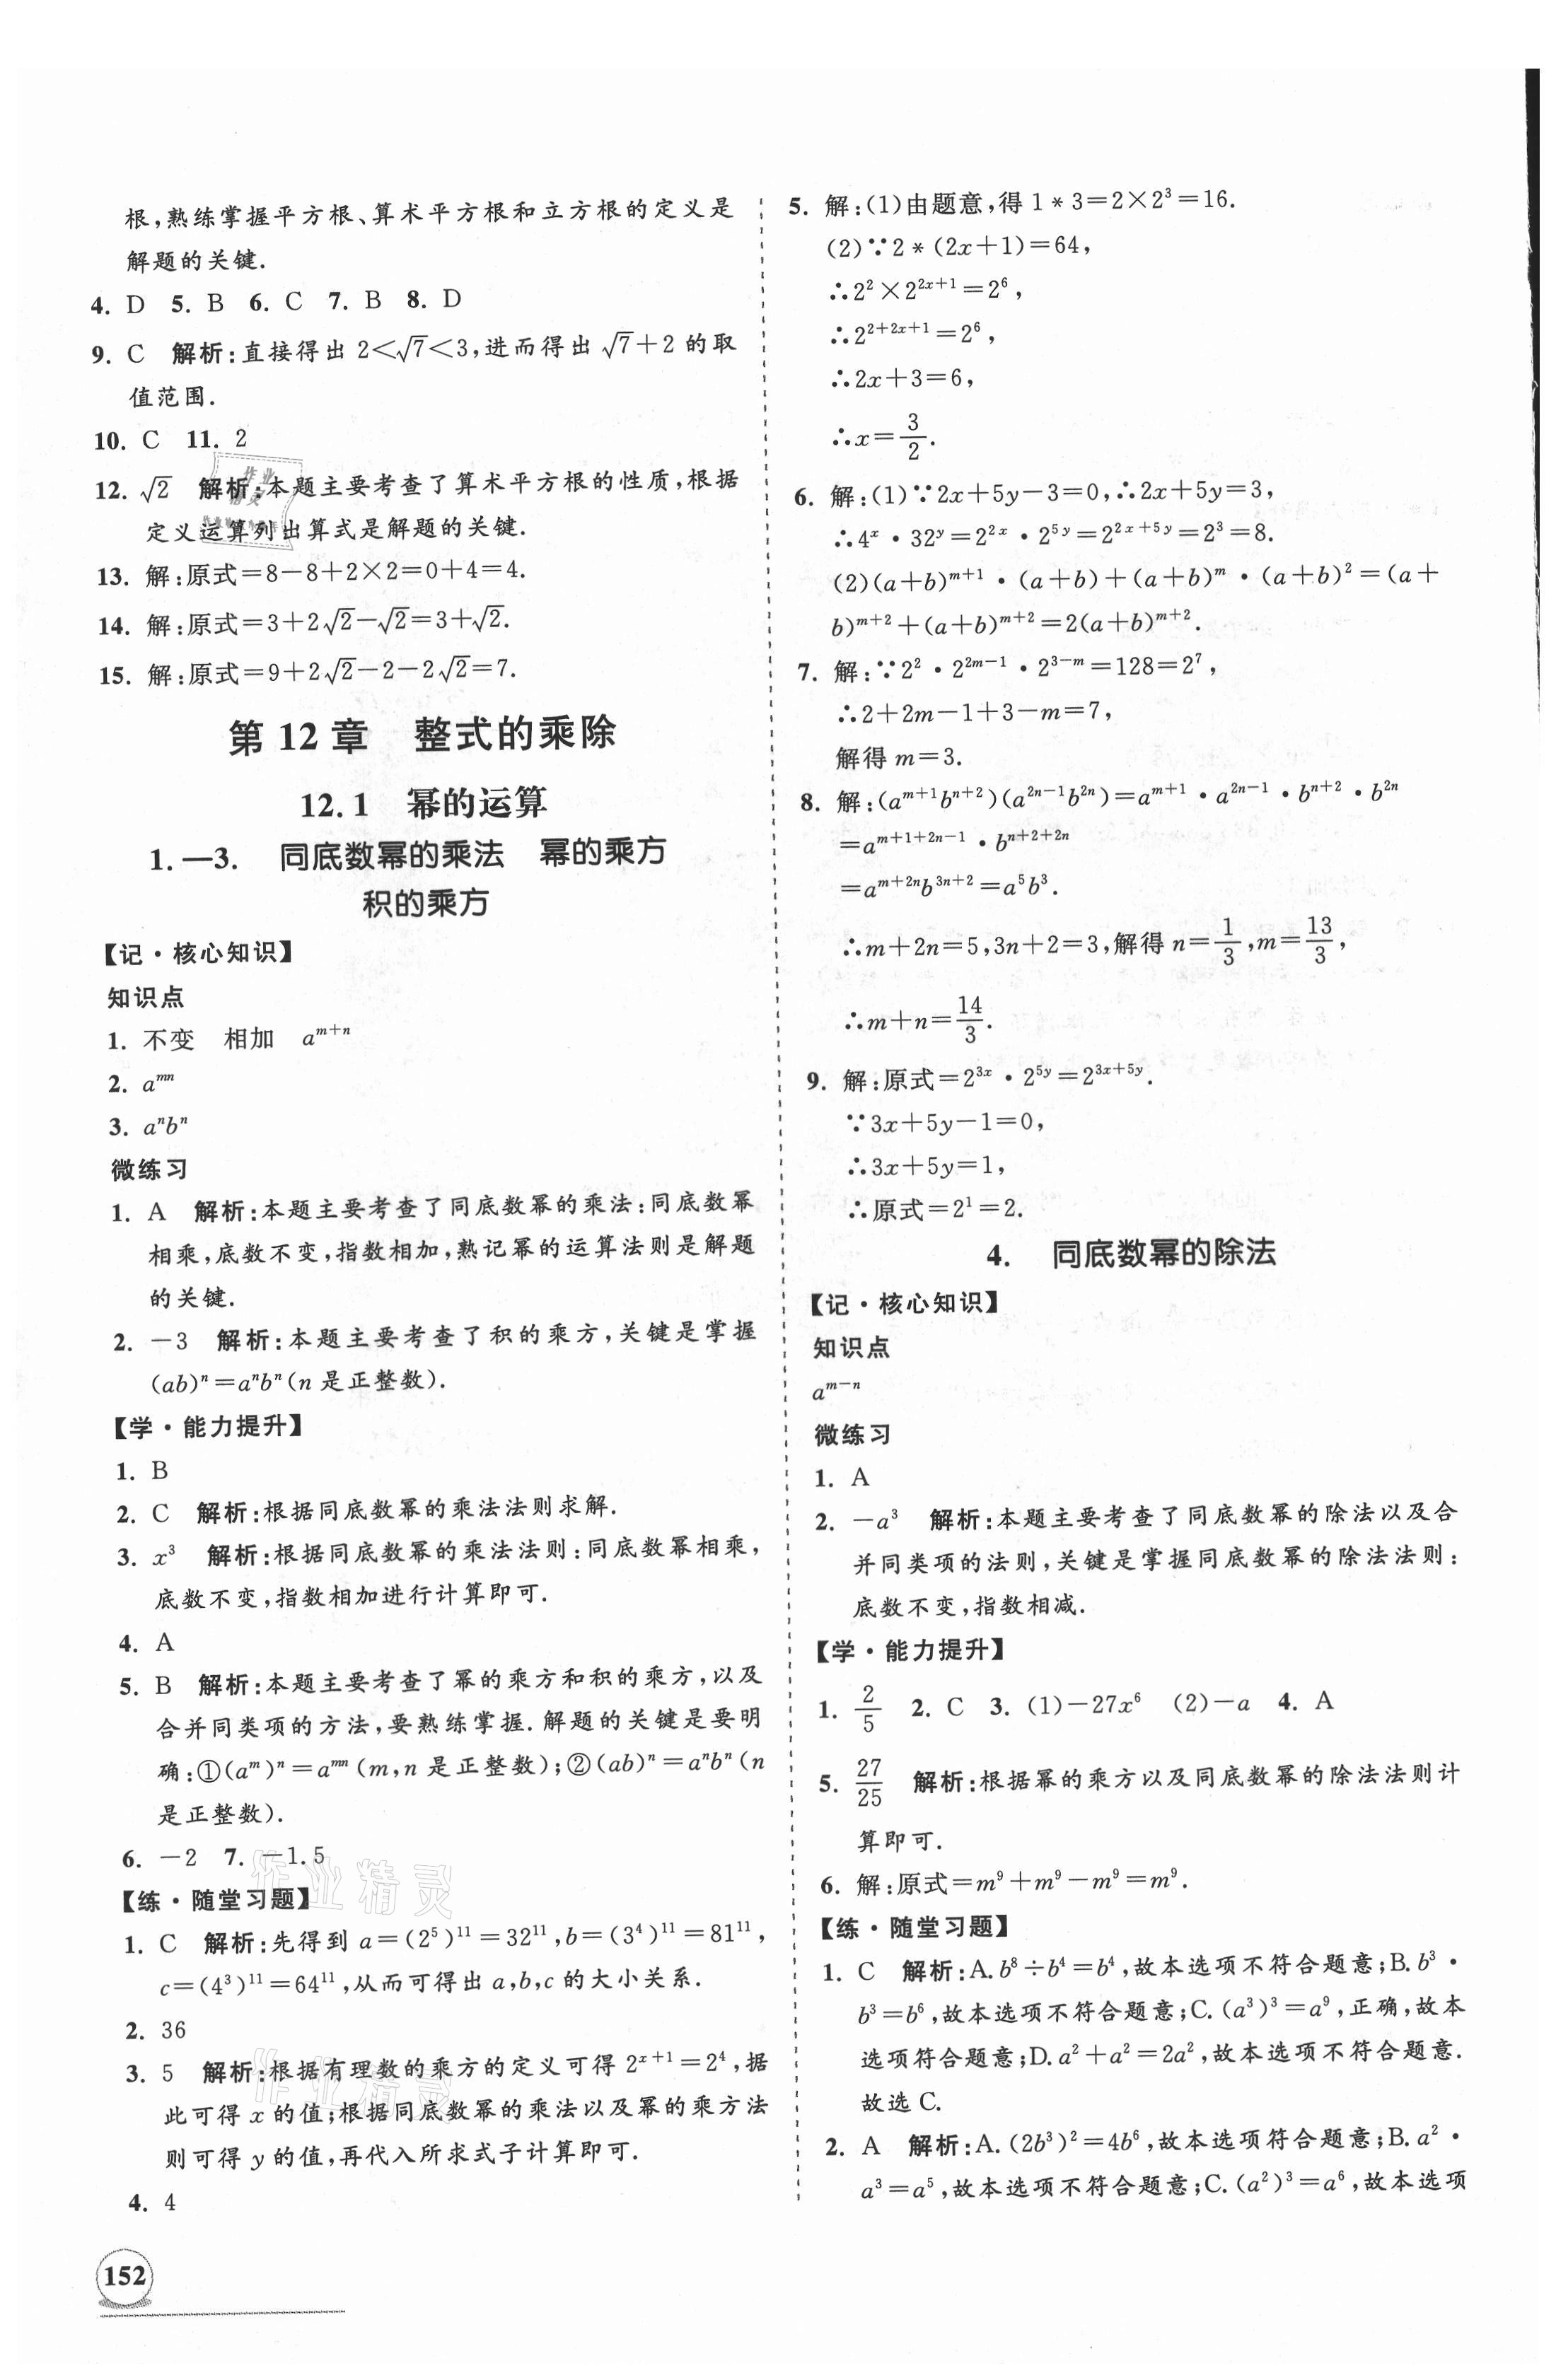 根,熟练掌握平方根、算术平方根和立方根的定义是
解题的关键.
4. D 5. B 6. C 7. B 8. D
9. C 解析:直接得出 2<√7<3,进而得出 √7+2 的取
值范围.
10. C 11. 2
12. √2 解析:本题主要考查了算术平方根的性质,根据
定义运算列出算式是解题的关键.
13. 解:原式=8-8+2×2=0+4=4.
14. 解:原式=3+2√2-√2=3+√2.
15. 解:原式=9+2√2-2-2√2=7.
第 12 章 整式的乘除
12.1 幂的运算
1.—3. 同底数幂的乘法 幂的乘方
积的乘方
【记·核心知识】
知识点
1. 不变 相加 a^{m+n}
2. a^{mn}
3. a^n b^n
微练习
1. A 解析:本题主要考查了同底数幂的乘法:同底数幂
相乘,底数不变,指数相加,熟记幂的运算法则是解题
的关键.
2. -3 解析:本题主要考查了积的乘方,关键是掌握
(ab)^n=a^n b^n (n 是正整数).
【学·能力提升】
1. B
2. C 解析:根据同底数幂的乘法法则求解.
3. x^3 解析:根据同底数幂的乘法法则:同底数幂相乘,
底数不变,指数相加进行计算即可.
4. A
5. B 解析:本题主要考查了幂的乘方和积的乘方,以及
合并同类项的方法,要熟练掌握.解题的关键是要明
确:①(a^m)^n=a^{mn} (m,n 是正整数);②(ab)^n=a^n b^n (n
是正整数).
6. -2 7. -1.5
【练·随堂习题】
1. C 解析:先得到 a=(2^5)^{11}=32^{11},b=(3^4)^{11}=81^{11},
c=(4^3)^{11}=64^{11},从而可得出 a,b,c 的大小关系.
2. 36
3. 5 解析:根据有理数的乘方的定义可得 2^{x+1}=2^4,据
此可得 x 的值;根据同底数幂的乘法以及幂的乘方法
则可得 y 的值,再代入所求式子计算即可.
4. 4
152
5. 解:(1)由题意,得 1*3=2×2^3=16.
(2)∵2*(2x+1)=64,
∴2^2×2^{2x+1}=2^6,
∴2^{2+2x+1}=2^6,
∴2x+3=6,
∴x=3/2.
6. 解:(1)∵2x+5y-3=0,∴2x+5y=3,
∴4^x·32^y=2^{2x}·2^{5y}=2^{2x+5y}=2^3=8.
(2)(a+b)^{m+1}·(a+b)+(a+b)^m·(a+b)^2=(a+
b)^{m+2}+(a+b)^{m+2}=2(a+b)^{m+2}.
7. 解:∵2^2·2^{2m-1}·2^{3-m}=128=2^7,
∴2+2m-1+3-m=7,
解得 m=3.
8. 解:(a^{m+1}b^{n+2})(a^{2n-1}b^{2n})=a^{m+1}·a^{2n-1}·b^{n+2}·b^{2n}
=a^{m+1+2n-1}·b^{n+2+2n}
=a^{m+2n}b^{3n+2}=a^5b^3.
∴m+2n=5,3n+2=3,解得 n=1/3,m=13/3,
∴m+n=14/3.
9. 解:原式=2^{3x}·2^{5y}=2^{3x+5y}.
∵3x+5y-1=0,
∴3x+5y=1,
∴原式=2^1=2.
4. 同底数幂的除法
【记·核心知识】
知识点
a^{m-n}
微练习
1. A
2. -a^3 解析:本题主要考查了同底数幂的除法以及合
并同类项的法则,关键是掌握同底数幂的除法法则:
底数不变,指数相减.
【学·能力提升】
1. 2/5 2. C 3. (1)-27x^6 (2)-a 4. A
5. 27/25 解析:根据幂的乘方以及同底数幂的除法法则计
算即可.
6. 解:原式=m^9+m^9-m^9=m^9.
【练·随堂习题】
1. C 解析:A.b^8÷b^4=b^4,故本选项不符合题意;B.b^3·
b^3=b^6,故本选项不符合题意;C.(a^3)^3=a^9,正确,故本
选项符合题意;D.a^2+a^2=2a^2,故本选项不符合题意.
故选 C.
2. A 解析:A.(2b^3)^2=4b^6,故本选项符合题意;B.a^2·
a^3=a^5,故本选项不符合题意;C.(a^2)^3=a^6,故本选项
作业精灵
作业精灵